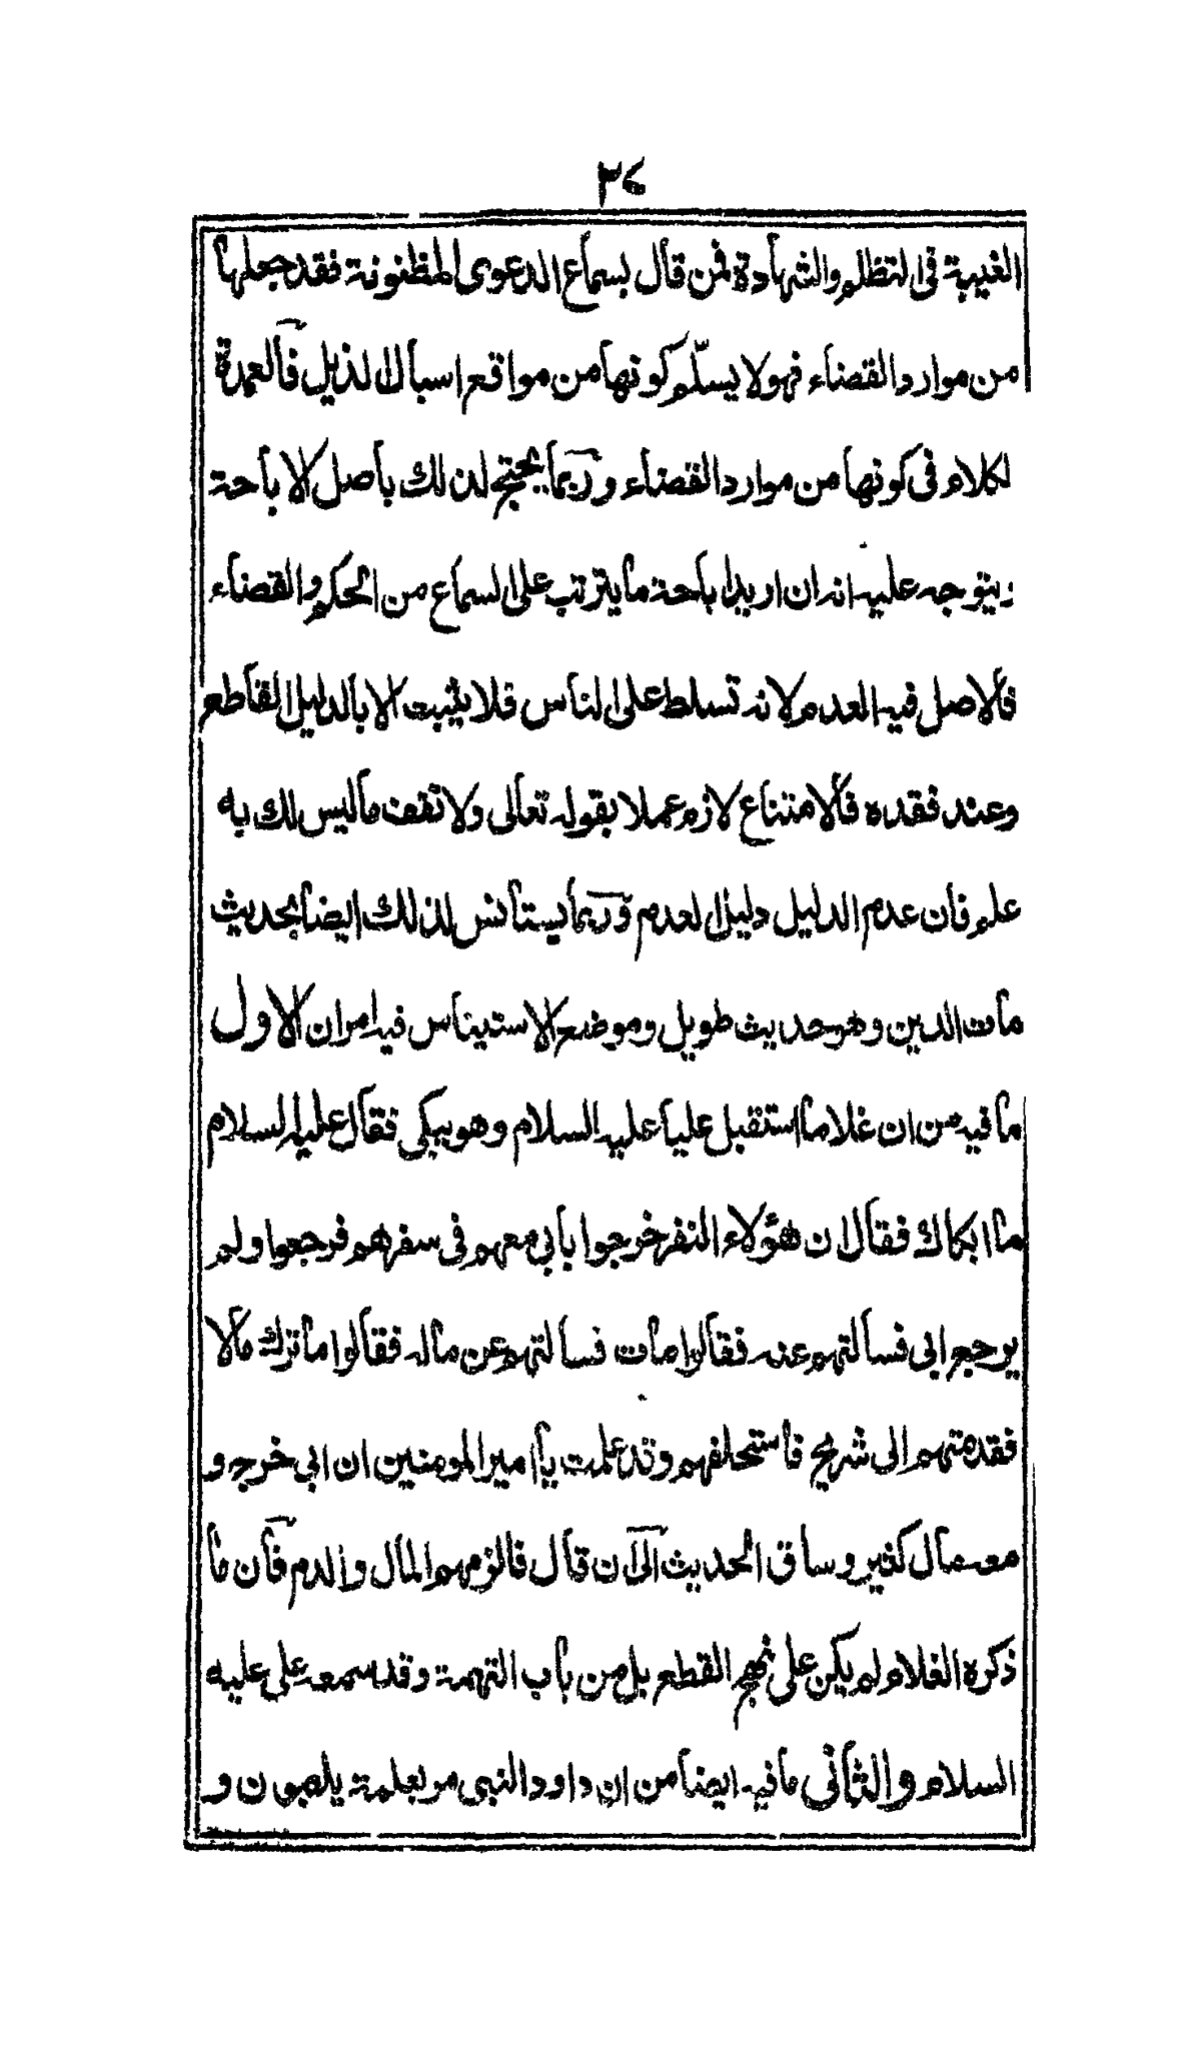 ٣٤
الغيبة في التظلم والشهادة فمن قال بسماع الدعوى المظنونة فقد جعلها
من موارد القضاء فهو لا يسلّم كونها من مواقع اسبال الذيل فالعمدة
لكلام في كونها من موارد القضاء وربما يحتج لذلك بأصل الاباحة
يتوجه عليه انه ان اريد اباحة ما يترتب على السماع من الحكم والقضاء
فالاصل فيه العدم لانه تسلط على الناس فلا يثبت الا بالدليل القاطع
وعند فقده فالامتناع لازم عملا بقوله تعالى ولا تقف ما ليس لك به
علم فان عدم الدليل دليل العدم وربما يستأنس لذلك ايضا بحديث
مات الدين وهو حديث طويل وموضع الاستيناس فيه امران الاول
ما فيه من ان غلاما استقبل عليا عليه السلام وهو يبكي فقال عليه السلام
ما ابكاك فقال ان هؤلاء النفر خرجوا بابي معهم في سفرهم فرجعوا ولم
يرجع ابي فسألتهم عنه فقالوا مات فسألتهم عن ماله فقالوا ما ترك مالا
فقدمتهم الى شريح فاستحلفهم وقد علمت يا امير المومنين ان ابي خرج و
معه مال كثير وساق الحديث الى ان قال فالزمهم المال والدم فان ما
ذكره الغلام لم يكن على نهج القطع بل من باب التهمة وقد سمعه علي عليه
السلام والثاني ما فيه ايضا من ان داود النبي مر بغلمة يلعبون و